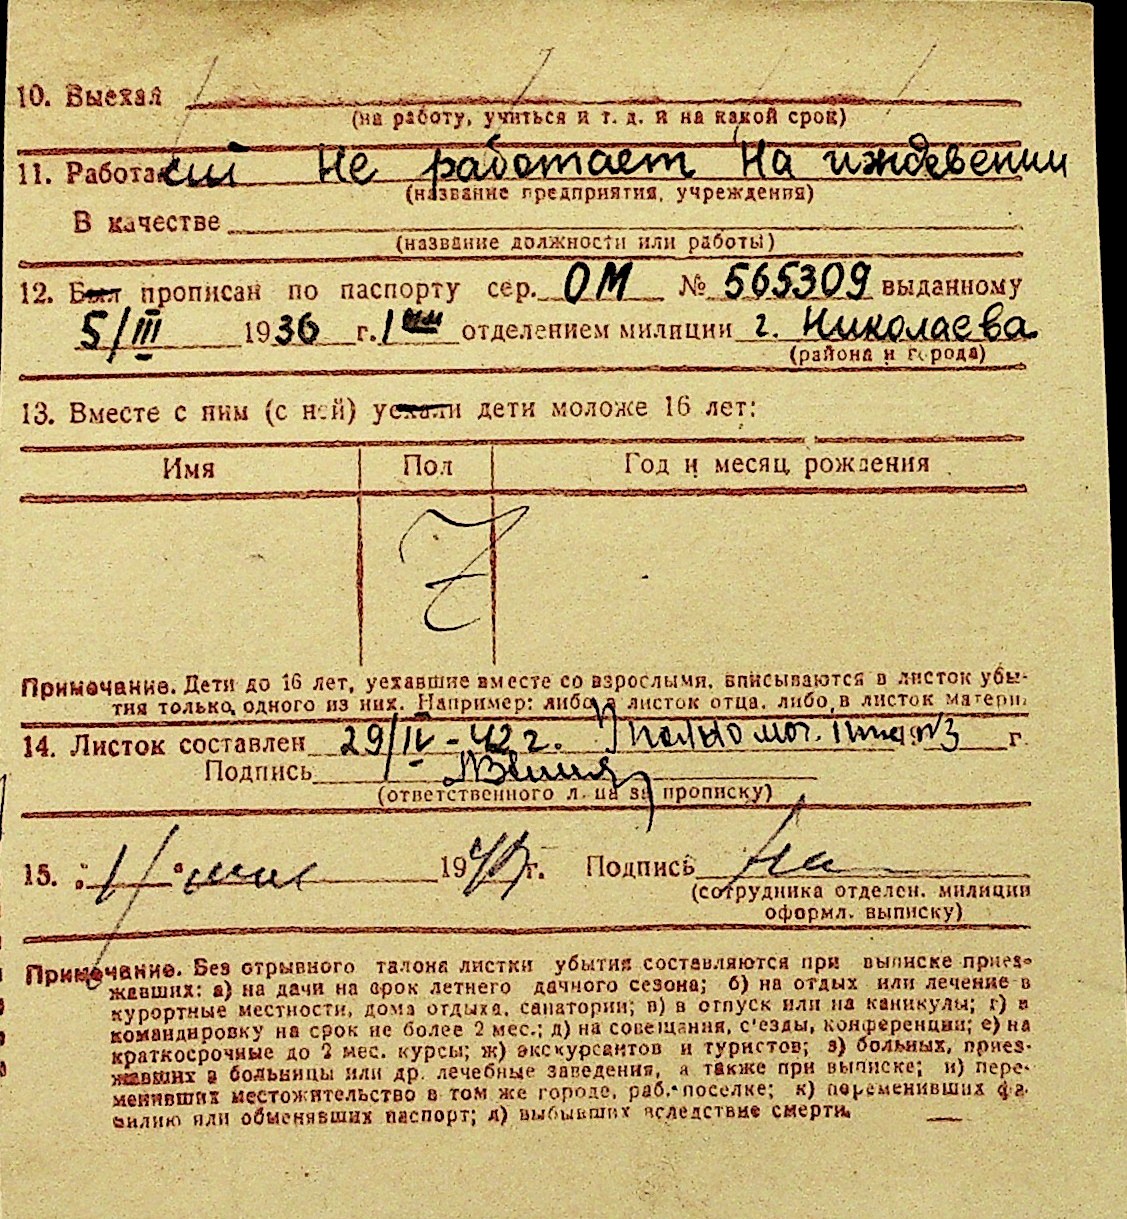 10. Выехал
(на работу, учиться и т. д. и на какой срок)
11. Работа Не работает На иждевении
(название предприятия, учреждения)
В качестве
(название должности или работы)
12. Был прописан по паспорту сер. ОМ № 565309 выданному
5/III 1936 г. 1 отделением милиции г. Николаева
(района и города)
13. Вместе с ним (с ней) уехали дети моложе 16 лет:
Имя Пол Год и месяц рождения
Z
Примечание. Дети до 16 лет, уехавшие вместе со взрослыми, вписываются в листок убы-
тия только одного из них. Например: либо в листок отца, либо в листок матери.
14. Листок составлен 29/IV - 42 г. г.
Подпись
(ответственного лица за прописку)
15. " 1 " 19 г. Подпись
(сотрудника отделен. милиции
оформл. выписку)
Примечание. Без отрывного талона листки убытия составляются при выписке приез-
жавших: а) на дачи на срок летнего дачного сезона; б) на отдых или лечение в
курортные местности, дома отдыха, санатории; в) в отпуск или на каникулы; г) в
командировку на срок не более 2 мес.; д) на совещания, с'езды, конференции; е) на
краткосрочные до 2 мес. курсы; ж) экскурсантов и туристов; з) больных, приез-
жавших в больницы или др. лечебные заведения, а также при выписке; и) пере-
менивших местожительство в том же городе, раб. поселке; к) переменивших фа-
милию или обменявших паспорт; л) выбывших вследствие смерти.